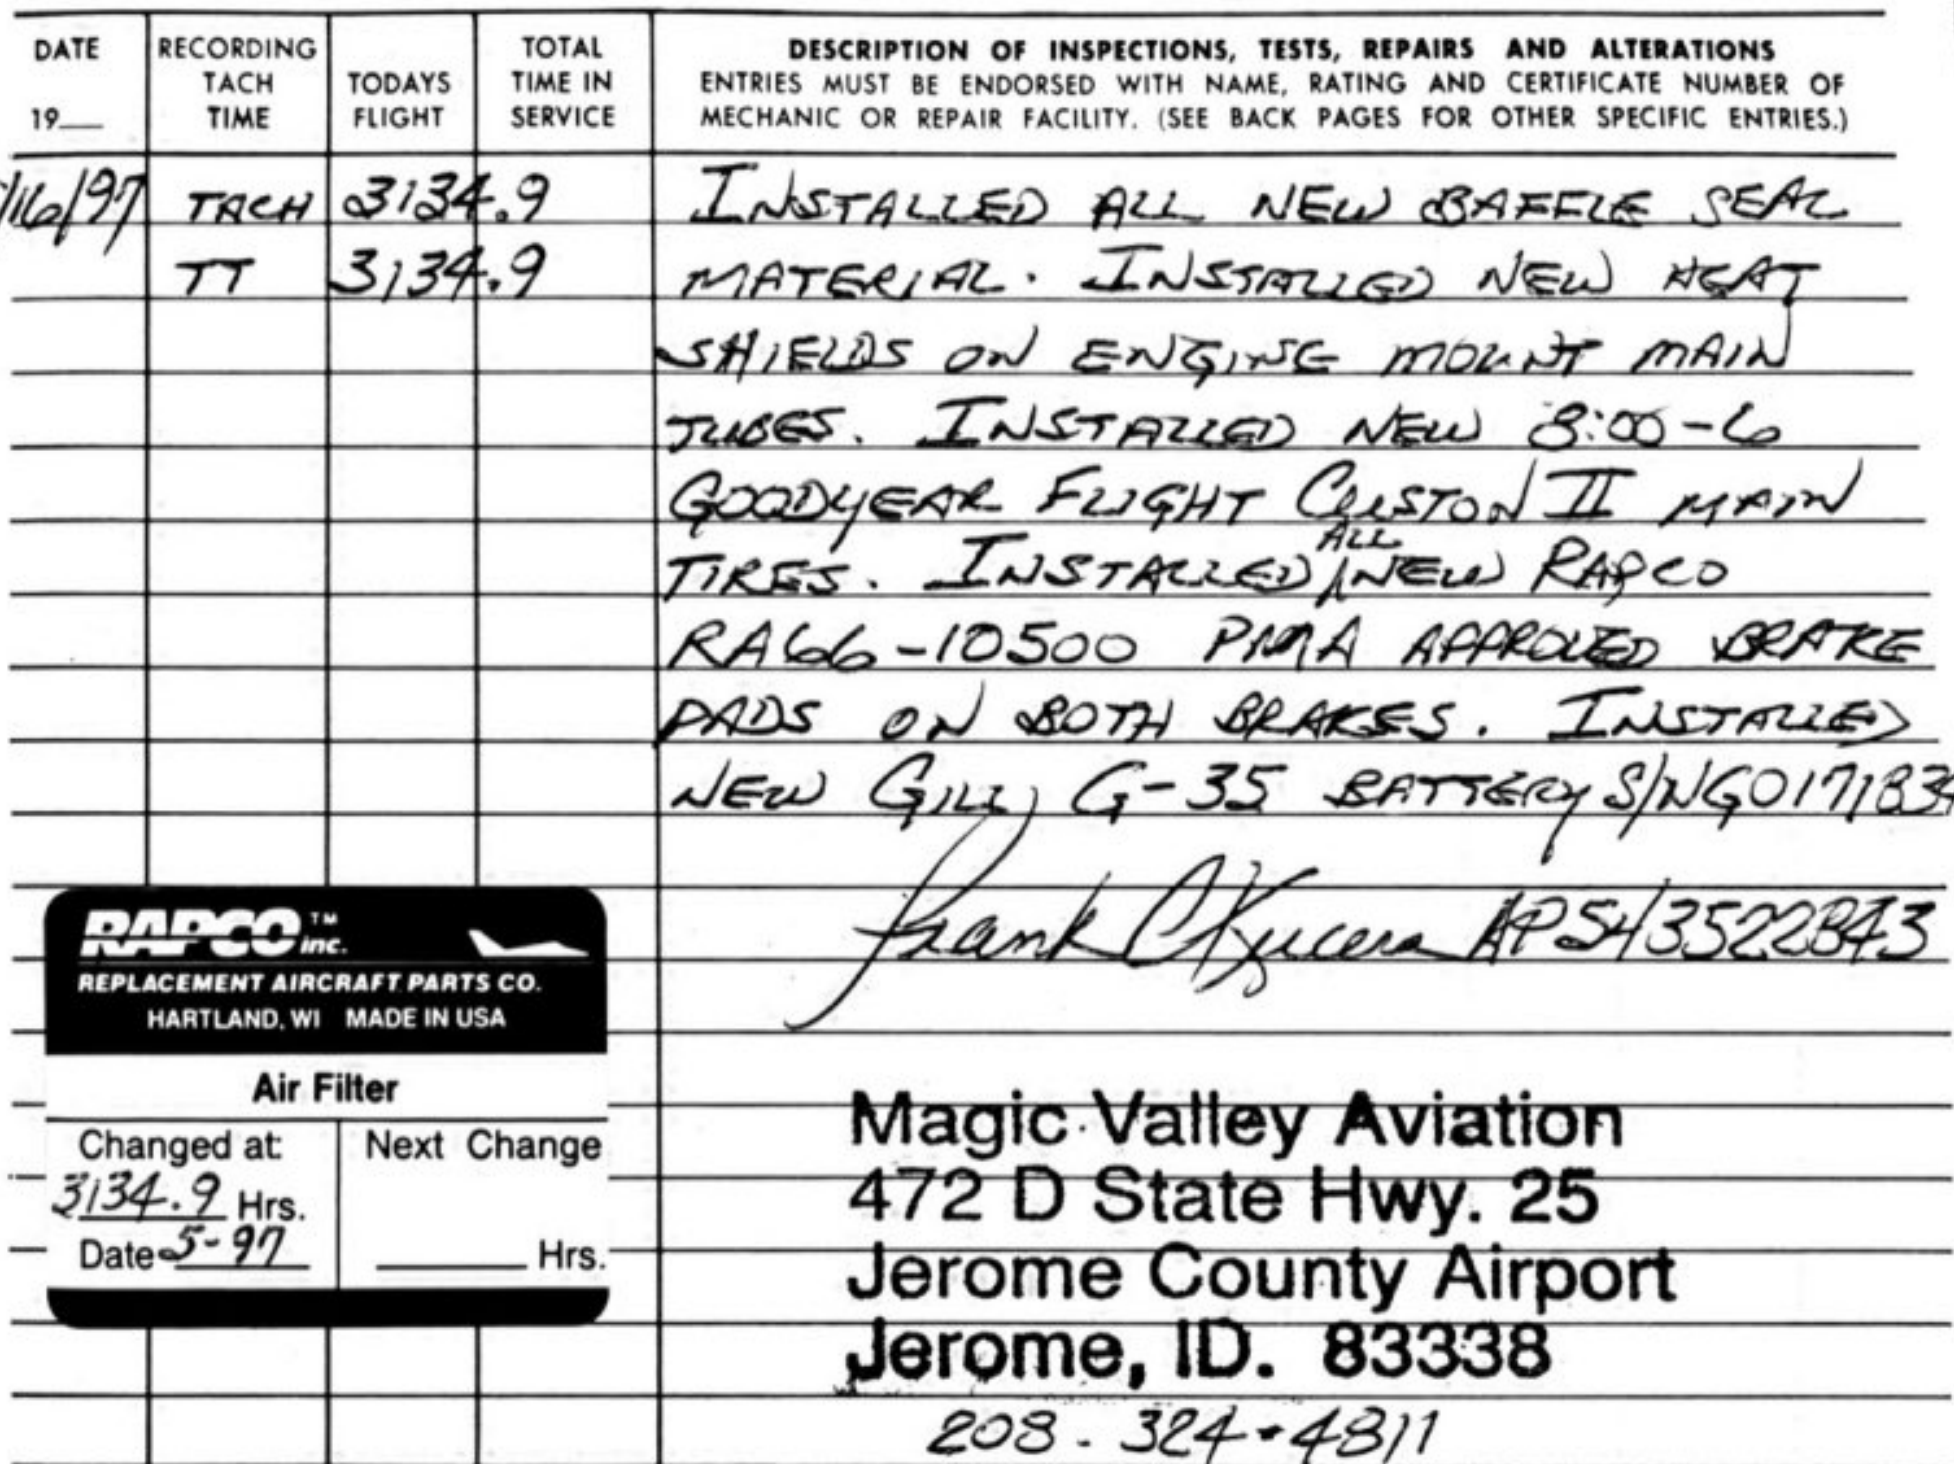 DATE
19__
RECORDING
TACH
TIME
TODAYS
FLIGHT
TOTAL
TIME IN
SERVICE
DESCRIPTION OF INSPECTIONS, TESTS, REPAIRS AND ALTERATIONS
ENTRIES MUST BE ENDORSED WITH NAME, RATING AND CERTIFICATE NUMBER OF
MECHANIC OR REPAIR FACILITY. (SEE BACK PAGES FOR OTHER SPECIFIC ENTRIES.)
/16/97 TACH 3134.9 INSTALLED ALL NEW BAFFLE SEAL
TT 3134.9 MATERIAL. INSTALLED NEW HEAT
SHIELDS ON ENGINE MOUNT MAIN
TUBES. INSTALLED NEW 8:00-6
GOODYEAR FLIGHT CUSTON II MAIN
TIRES. INSTALLED ALL NEW RAPCO
RA66-10500 PMA APPROVED BRAKE
PADS ON BOTH BRAKES. INSTALLED
NEW GILL G-35 BATTERY S/N
Frank C Kucera
RAPCO™ inc.
REPLACEMENT AIRCRAFT PARTS CO.
HARTLAND, WI MADE IN USA
Air Filter
Changed at:
3134.9 Hrs.
Date 5-97
Next Change
____ Hrs.
Magic Valley Aviation
472 D State Hwy. 25
Jerome County Airport
Jerome, ID. 83338
208-324-4811